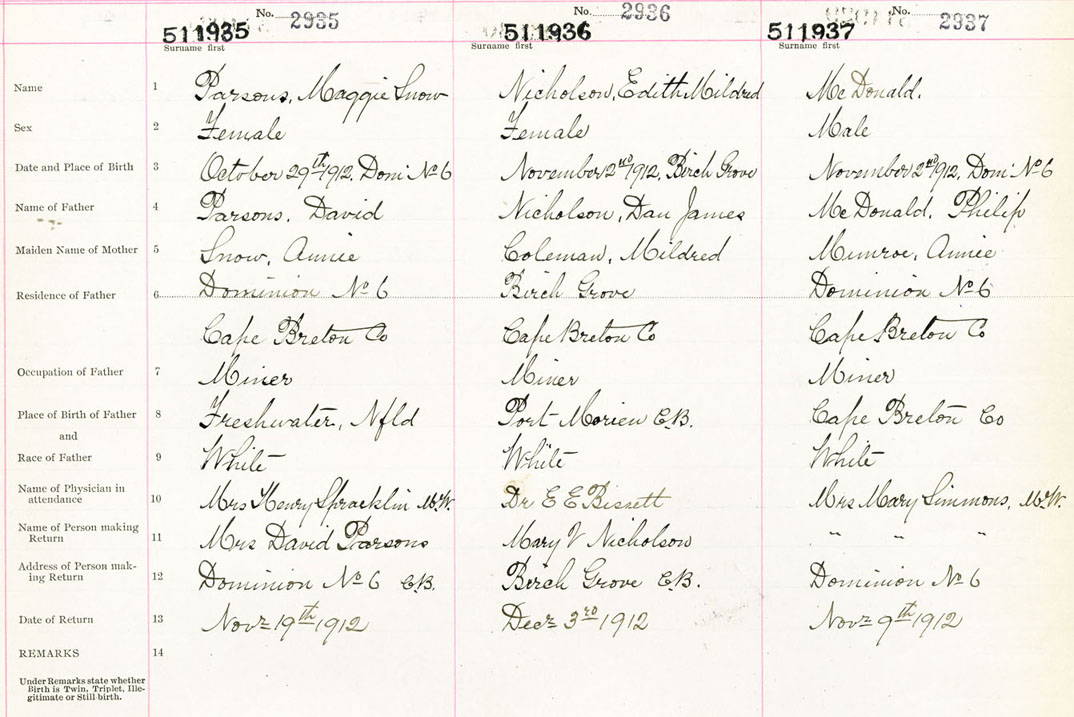 No. 2935 No. 2936 No. 2937
511935 511936 511937
Surname first Surname first Surname first
Name 1 Parsons, Maggie Snow Nicholson, Edith Mildred McDonald.
Sex 2 Female Female Male
Date and Place of Birth 3 October 29th 1912, Dom: No 6 November 2nd 1912, Birch Grove November 2nd 1912, Dom: No 6
Name of Father 4 Parsons, David Nicholson, Dan James McDonald, Philip
Maiden Name of Mother 5 Snow, Annie Coleman, Mildred Munroe, Annie
Residence of Father 6 Dominion No 6 Birch Grove Dominion No 6
Cape Breton Co Cape Breton Co Cape Breton Co
Occupation of Father 7 Miner Miner Miner
Place of Birth of Father 8 Freshwater, Nfld Port Morien C.B. Cape Breton Co
and
Race of Father 9 White White White
Name of Physician in
attendance 10 Mrs Henry Spracklin M.W. Dr E E Bissett Mrs Mary Simmons, M.W.
Name of Person making
Return 11 Mrs David Parsons Mary V Nicholson " " "
Address of Person mak-
ing Return 12 Dominion No 6 C.B. Birch Grove C.B. Dominion No 6
Date of Return 13 Novr 19th 1912 Decr 3rd 1912 Novr 9th 1912
REMARKS 14
Under Remarks state whether
Birth is Twin, Triplet, Ille-
gitimate or Still-birth.